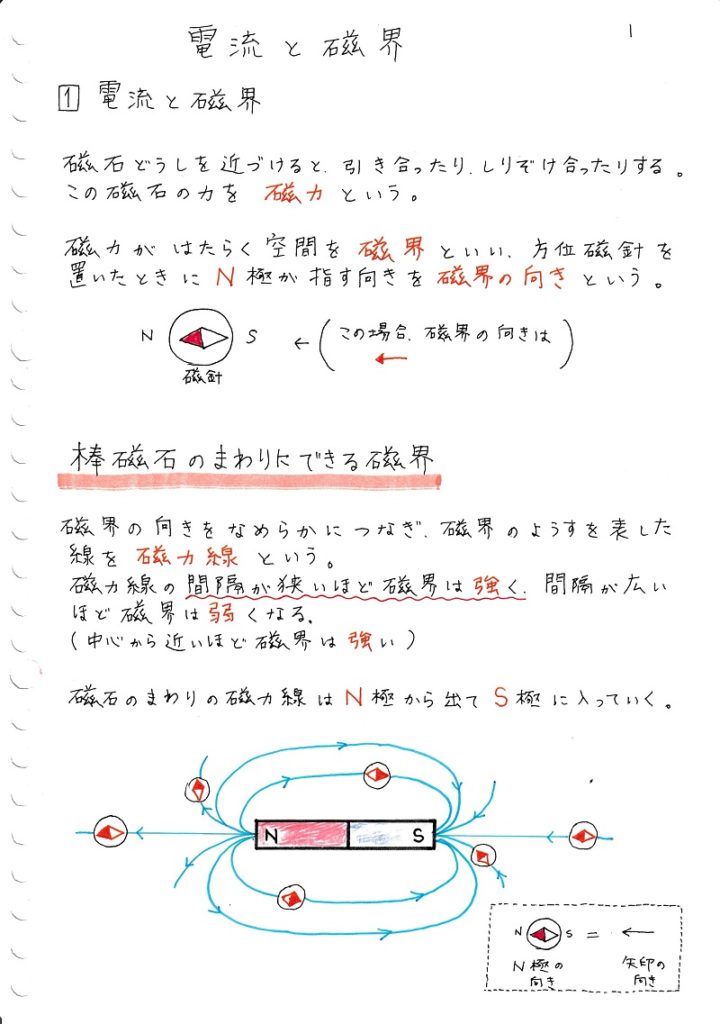 電流と磁界
1
1 電流と磁界
磁石どうしを近づけると、引き合ったり、しりぞけ合ったりする。
この磁石の力を 磁力 という。
磁力が はたらく空間を 磁界 といい、方位磁針を
置いたときに N極が指す向きを 磁界の向き という。
N S ← (この場合、磁界の向きは
←)
磁針
棒磁石のまわりにできる磁界
磁界の向きをなめらかにつなぎ、磁界のようすを表した
線を 磁力線 という。
磁力線の間隔が狭いほど磁界は強く、間隔が広い
ほど磁界は弱くなる。
(中心から近いほど磁界は強い)
磁石のまわりの磁力線は N極から出て S極に入っていく。
N S
N S = ←
N極の 矢印の
向き 向き